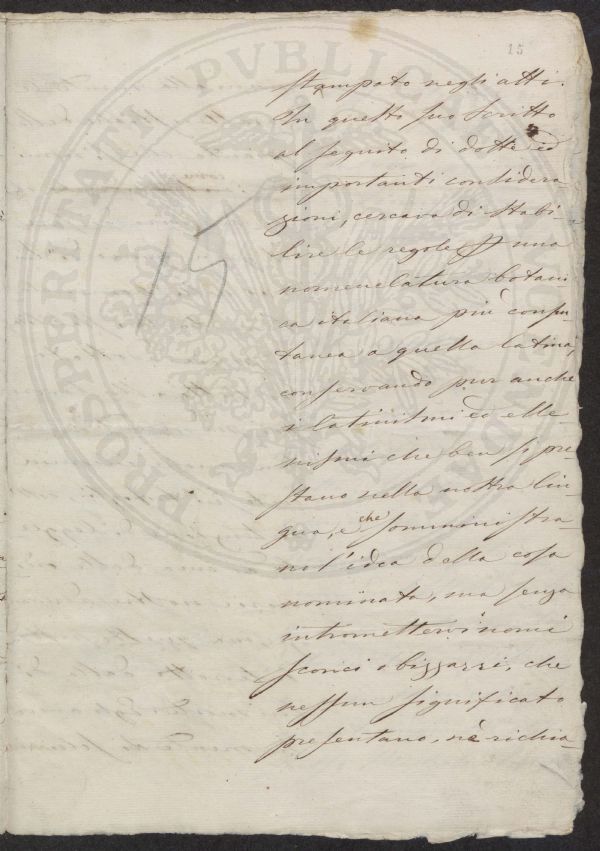 15
stampato negli atti.
In questo suo scritto
al seguito di dotte ed
importanti considera
zioni, cercava di stabi
lire le regole p una
nomenclatura botani
ca italiana più consen
tanea a quella latina,
conservando pur anche
i latinismi ed elle
nismi che ben si pre
stano nella nostra lin
gua, e che somministra
no l'idea della cosa
nominata, ma senza
intrometter vi nomi
sconci o bizzarri, che
nessun significato
presentano, nè richia-
15
PROSPERITATI PVBLICAE AVGENDAE